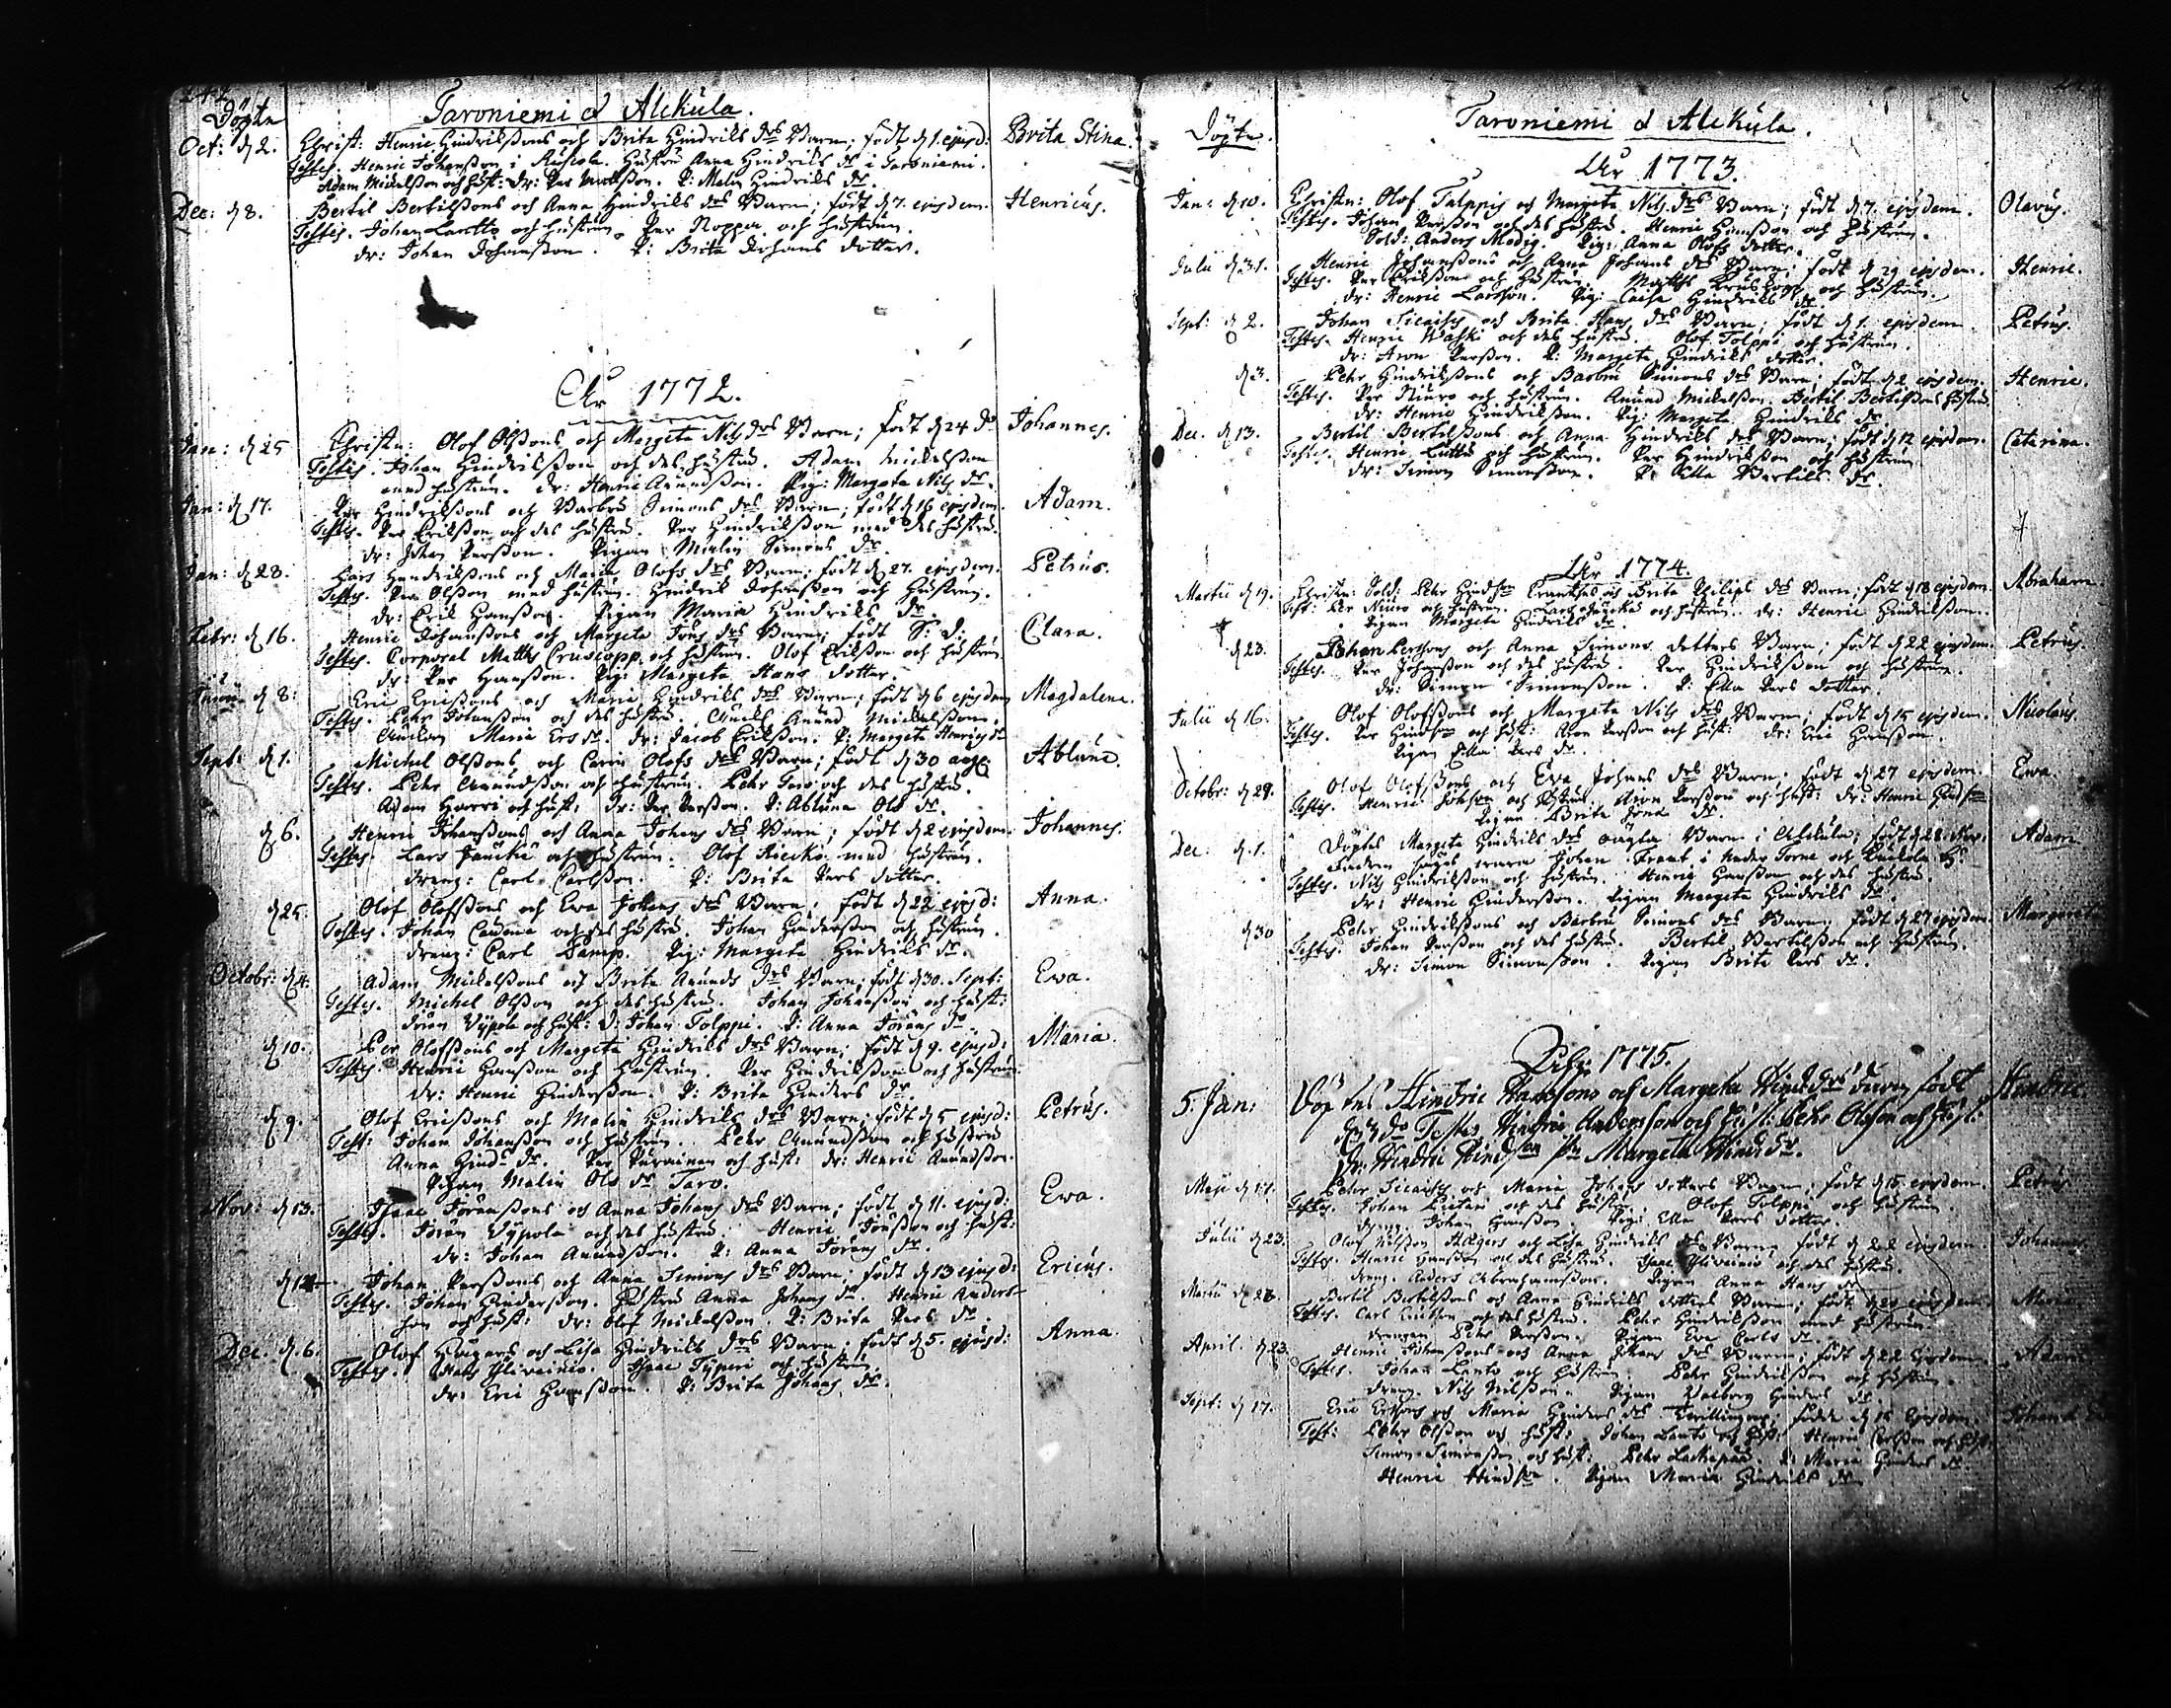 Döpte
Taroniemi & Alckula.
Oct: d 2. Christ: Henric Hindrikssons och Brita Hindriks drs Barn; födt d 1. ejusd: Brita Stina.
Testes. Henric Johansson i Hustru Anna Hindriks dr i Taroniemi.
Adam Mickelsson och hust: dr: Per P: Malin Hindriks dr.
Dec: d 8. Bertil Bertilssons och Anna Hindriks drs Barn; födt d 7. ejusdem. Henricus.
Testes. Johan Lantto och hustrun. Per Noppa och hustrun.
dr: Johan Johansson. P: Brita Johans dotter.
År 1772.
Jan: d 25 Christn: Olof Olssons och Margeta Nils drs Barn; födt d 24 do Johannes.
Testes: Johan Hindriksson och des hustru. Adam Mickelsson
med hustrun. dr: Henric Amundsson. Pig: Margeta Nils dr.
Jan: d 17. Per Hindrikssons och Barbru Simons drs Barn; födt d 16 ejusdem. Adam.
Testes. Per Eriksson och des hustru. Per Hindriksson med des hustru.
dr: Johan Persson. Pigan Malin Simons dr.
Jan: d 28. Lars Hendrikssons och Maria Olofs drs Barn; födt d 27. ejusdem. Petrus.
Testes. Per Olsson med hustrun. Hindrik Johansson och hustrun.
dr: Erik Hansson. Pigan Maria Hindriks dr.
Febr: d 16. Henric Johanssons och Margeta Jöns drs Barn; födt S: D: Clara.
Testes. Corporal Matths Cruscopp och hustrun. Olof Eriksson och hustrun
dr: Per Hansson. Pig: Margeta Hans dotter.
d 8: Eric Ericssons och Maria Hindriks drs Barn; födt d 6 ejusdem Magdalena.
Testes. Pehr Johansson och des hustru. Amund Mickelsson.
Maria Ers dr. dr: Jacob Eriksson. P: Margeta Henrics dr
Sept: d 1. Michel Olssons och Carin Olofs drs Barn; födt d 30 aug: Ablüna.
Testes. Pehr Amundsson och hustrun. Pehr Taro och des hustru.
Adam Harri och hust: dr: Per Persson. P: Ablüna Ols dr.
d 6. Henric Johanssons och Anna Johans drs Barn; födt d 2 ejusdem. Johannes.
Testes. Lars Jäückü och hustrun. Olof Riecko med hustrun.
dreng: Carl Carlsson. P: Brita Pers dotter.
d 25 Olof Olofssons och Eva Johans drs Barn; födt d 22 ejusd: Anna.
Testes. Johan och des hustru. Johan Hindersson och hustrun.
dreng: Carl Pig: Margeta Hindriks dr.
Octobr: d 4. Adam Mickelssons och Brita Amunds drs Barn; födt d 30. Sept: Ewa.
Testes. Michel Olsson och des hustru. Johan Johansson och hust:
Jöran Vypola och hust: D: Johan Tolppi. P: Anna Jörans dr
d 10. Per Olofssons och Margeta Hindriks drs Barn; födt d 9. ejusd: Maria.
Testes. Henric Hansson och hustrun. Per Hindriksson och hustrun.
dr: Henric Hindersson. P: Brita Hinders dr.
d 9. Olof Ericssons och Malin Hindriks drs Barn; födt d 5 ejusd: Petrus.
Test: Johan Johansson och hustrun. Pehr Amundsson och hustru
Anna Hinds dr. Per Purainen och hust: dr: Henric Amundsson.
Pigan Malin Ols dr Taro.
Nov: d 13. Isaac Jöranssons och Anna Johans drs Barn; födt d 11. ejusd: Ewa.
Testes. Jöran Vypola och des hustru. Henric Jönsson och hust:
dr: Johan Amundsson. P: Anna Jörans dr.
d 14 Johan Perssons och Anna Simons drs Barn; födt d 13 ejusd: Ericus.
Testes. Johan Hindersson. Hustru Anna Johans dr. Henric Anders-
son och hust: dr: Olof Mickelsson. P: Brita Pers dr.
Dec. d 6. Olof Hägers och Lisa Hindriks drs Barn; födt d 5. ejusd: Anna.
Testes. Mats Yliveinio. Isaac och hustrun.
dr: Eric Hansson. P: Brita Johans dr.
Döpte.
Taroniemi & Alckula.
År 1773.
Jan: d 10. Christn: Olof Talppis och Margeta Nils drs Barn; födt d 7. ejusdem. Olavus.
Testes. Johan Persson och des hustru. Henric Hansson och hustrun.
Sold: Anders Modig. Pig: Anna Olofs dotter.
Julii d 31. Henric Johanssons och Anna Johans drs Barn; födt d 29 ejusdem. Henric.
Testes. Per Eriksson och hustrun. Matths Kruskopp och hustrun.
dr: Henric Larsson. Pig: Caisa Hindriks dr.
Sept: d 2. Johan och Brita Hans drs Barn; födt d 1. ejusdem Petrus.
Testes. Henric Waski och des hustru. Olof Tolppi och hustrun.
dr: Aron Persson. P: Margeta Hindriks dotter.
d 3. Pehr Hindrikssons och Barbru Simons drs Barn; födt d 2 ejusdem. Henric.
Testes. Per Niuro och hustrun. Amund Mickelsson. Bertil Bertilssons hustru.
dr: Henric Hindriksson. Pig: Margeta Hindriks dr.
Dec. d 13. Bertil Bertilssons och Anna Hindriks drs Barn; födt d 12 ejusdem. Catarina.
Testes. Henric och hustrun. Per Hindriksson och hustrun.
dr: Simon Simonsson. P: Ella Bertils dr.
År 1774.
Martii d 19. Christn: Sold: Pehr Hindsson och Brita Philips drs Barn; födt d 18 ejusdem. Abraham.
Test: Per Niuro och hustrun. Lars Jäückü och hustrun. dr: Henric Hindriksson.
Pigan Margeta Hindriks dr.
d 23. Johan Perssons och Anna Simons dotters Barn; födt d 22 ejusdem. Petrus.
Testes. Per Johansson och des hustru. Per Hindriksson och hustrun.
dr: Simon Simonsson. P: Ella Pers dotter.
Julii d 16. Olof Olofssons och Margeta Nils drs Barn; födt d 15 ejusdem. Nicolaus.
Testes. Per Hindsson och hust: Aron Persson och hust: dr: Eric Hansson.
Pigan Ella Pers dr.
Octobr: d 29. Olof Olofssons och Ewa Johans drs Barn. födt d 27 ejusdem. Ewa.
Testes. Henric Johsson och hustru. Aron Persson och hust: dr: Henric Hindsson
Pigan Brita dr.
Dec: d 1. Döptes Margeta Hindriks drs oägta Barn i Alckula; födt d 28 Nov: Adam.
Fadren säges wara Johan i Neder Torne och
Testes. Nils Hindriksson och hustrun. Henric Hansson och des hustru.
dr: Henric Hindersson. Pigan Margeta Hindriks dr.
d 30 Pehr Hindrikssons och Barbru Simons drs Barn; födt d 27 ejusdem. Margareta
Testes. Johan Persson och des hustru. Bertil Bertilsson och hustrun.
dr: Simon Simonsson. Pigan Brita Pers dr.
1775.
5. Jan: Döptes Hindric Hanssons och Margeta Hind: drs barn födt Hindric.
d 3 do Testes Hindric Andersson och hust: Pehr Olsson och hust:
Dr: Hindric Hindsson Pn Margeta Hind: dr.
Maji d 17. Pehr och Maria Johans dotters Barn; födt d 15. ejusdem. Petrus
Testes. Johan och des hustru. Olof Tolppi och hustrun.
dreng. Johan Hansson. Pig: Ella Pers dotter.
Julii d 23. Olof Nilsson Hägers och Lisa Hindriks drs Barn; födt d 22 ejusdem. Johannes
Testes. Henric Hansson och des hustru. Isaac Yliveinio och des hustru.
dreng. Anders Abrahamsson. Pigan Anna Hans dr.
Martii d 28. Bertil Bertilssons och Anna Hindriks dotters Barn; födt ejusdem. Maria
Testes. Carl Ericsson och des hustru. Pehr Hindriksson med hustrun.
drengen Pehr Persson. Pigan Eva Carls dr.
April. d 23. Henric Johanssons och Anna Johans drs Barn; födt d 22 Ejusdem. Adam
Testes. Johan Lanto och hustrun. Pehr Hindriksson och hustrun.
dreng. Nils Nilsson. Pigan Valborg Hinders dr
Sept: d 17. Eric Erssons och Maria Hinders drs Twillingar; födde d 15 Ejusdem. Johan &
Test: Pehr Olsson och hust: Johan Lanto och hust: Henric Carlsson och hust:
Simon Simonsson och hust: Pehr Lackapää. P: Maria Hinders dr
Henric Hindsson. Pigan Maria Hindriks dr